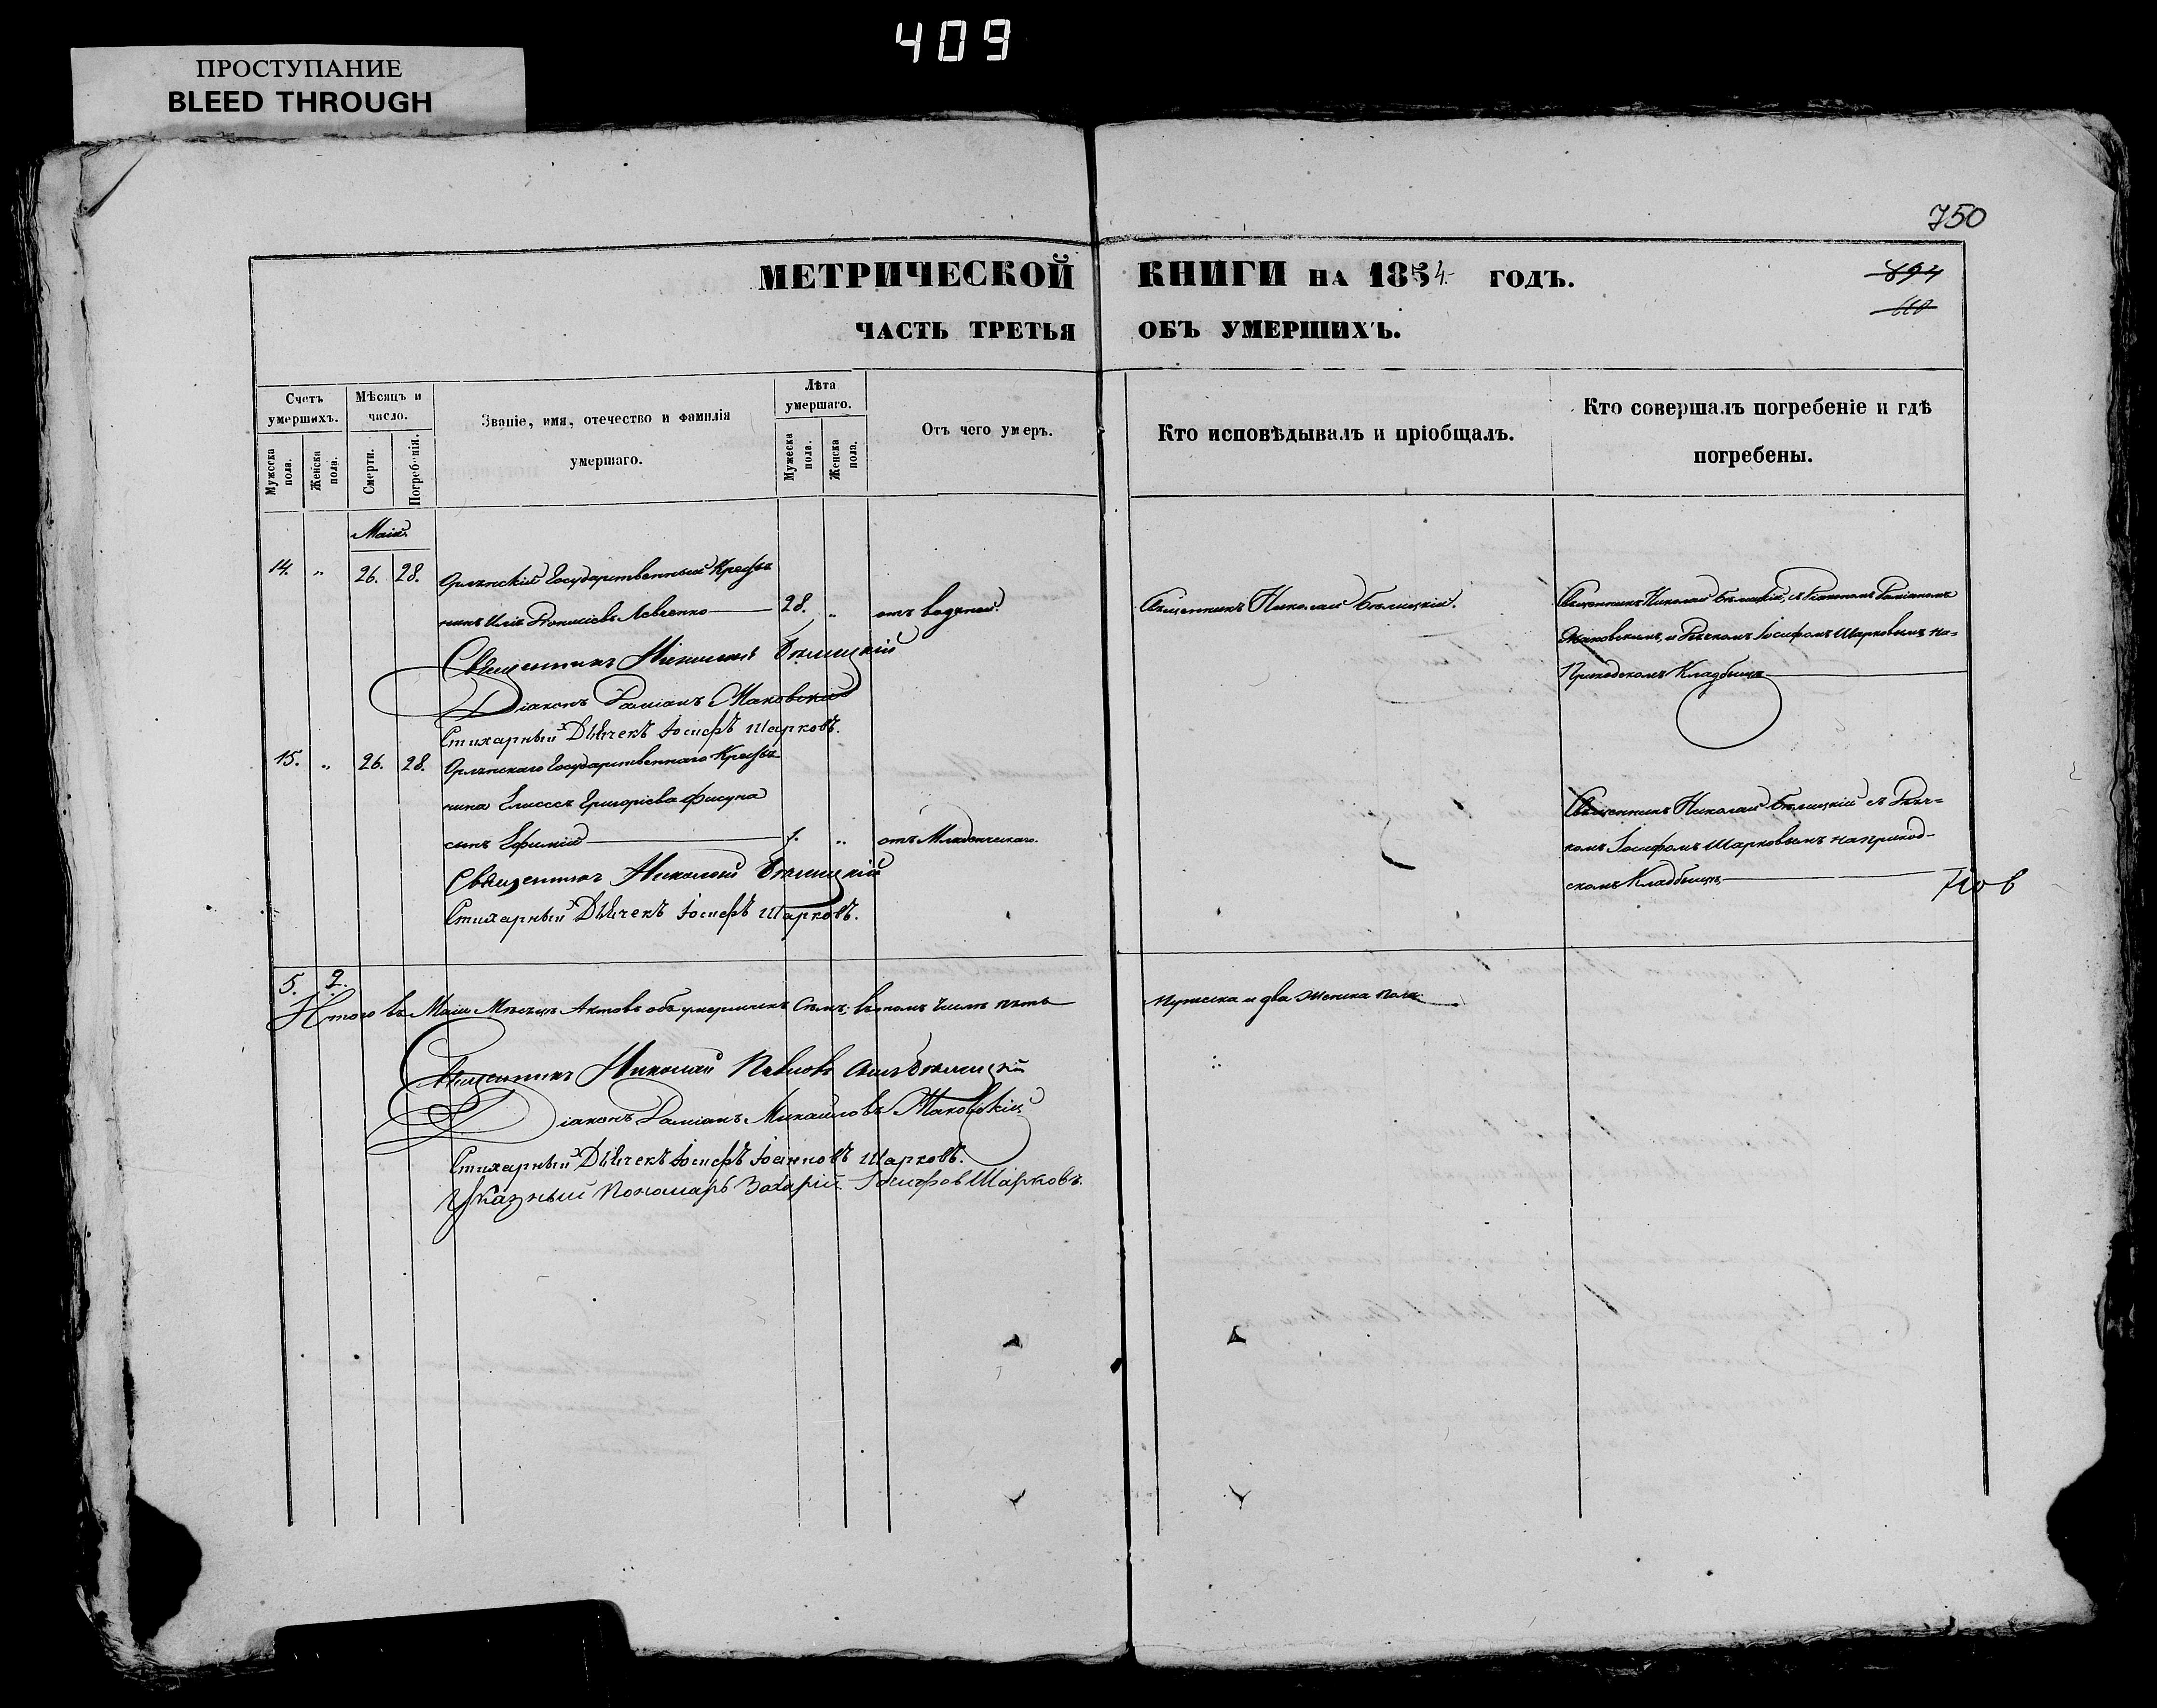 409
ПРОСТУПАНИЕ
BLEED THROUGH
750
МЕТРИЧЕСКОЙ КНИГИ НА 1854 ГОДЪ.
894
ЧАСТЬ ТРЕТЬЯ ОБЪ УМЕРШИХЪ.
Счетъ умершихъ.
Мужеска пола.
Женска пола.
Мѣсяцъ и число.
Смерти.
Погребенія.
Званіе, имя, отечество и фамилія умершаго.
Лѣта умершаго.
Мужеска пола.
Женска пола.
Отъ чего умеръ.
Кто исповѣдывалъ и пріобщалъ.
Кто совершалъ погребеніе и гдѣ погребены.
Маія.
14. „ 26. 28. Государственный Кресть-
нинъ Илія Діонисіевъ Левченко 28. „ отъ водяной. Священникъ Николай Бѣлицкій.
Священникъ Николай Бѣлицкій, съ Діакономъ Даміаномъ
Маковскимъ, и Дьячкомъ Іосифомъ Шарковымъ на-
Приходскомъ Кладбищѣ
Священникъ Николай Бѣлицкій
Діаконъ Даміанъ Маковскій
Стихарный Дьячекъ Іосифъ Шарковъ.
15. „ 26. 28. Государственнаго Кресть-
нина Елисея Григоріева Фисуна
сынъ Ефимій 1. „ отъ Младенческаго.
Священникъ Николай Бѣлицкій съ Дьяч-
комъ Іосифомъ Шарковымъ на приход-
скомъ Кладбищѣ
Священникъ Николай Бѣлицкій
Стихарный Дьячекъ Іосифъ Шарковъ.
5. 2.
Итого въ Маіи Мѣсяцѣ Актовъ объ умершихъ Семь; въ томъ числѣ пять мужеска и два женска пола.
Священникъ Николай Павловъ Сынъ Бѣлицкій
Діаконъ Даміанъ Михайловъ Маковскій
Стихарный Дьячекъ Іосифъ Іоанновъ Шарковъ.
Указный Пономарь Захарій Іосифовъ Шарковъ.